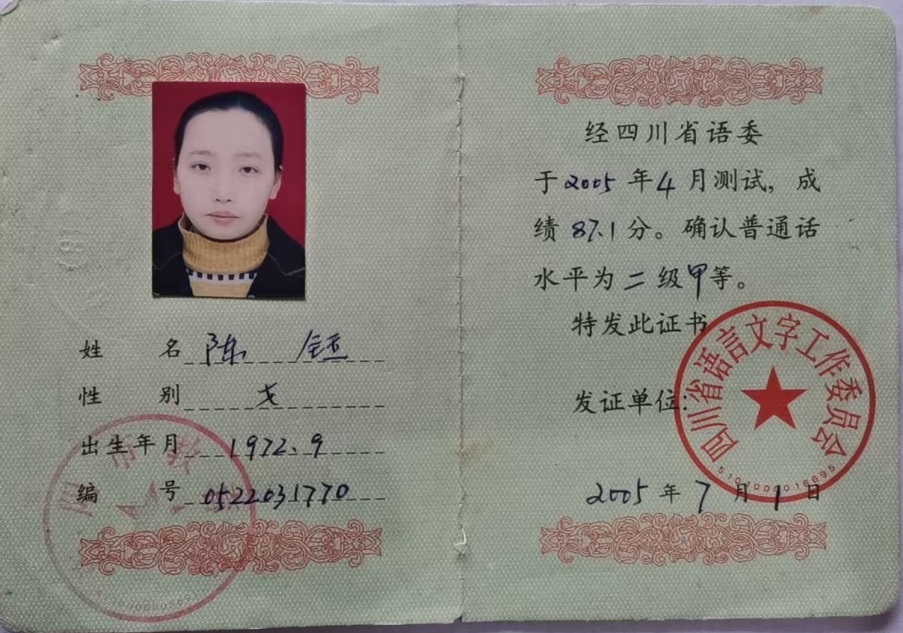 姓 名 陈 钰
性 别 女
出生年月 1972.9
编 号 0522031770
经四川省语委
于2005年4月测试，成
绩87.1分。确认普通话
水平为二级甲等。
特发此证书
发证单位：
四川省语言文字工作委员会
5101000016695
2005年7月1日